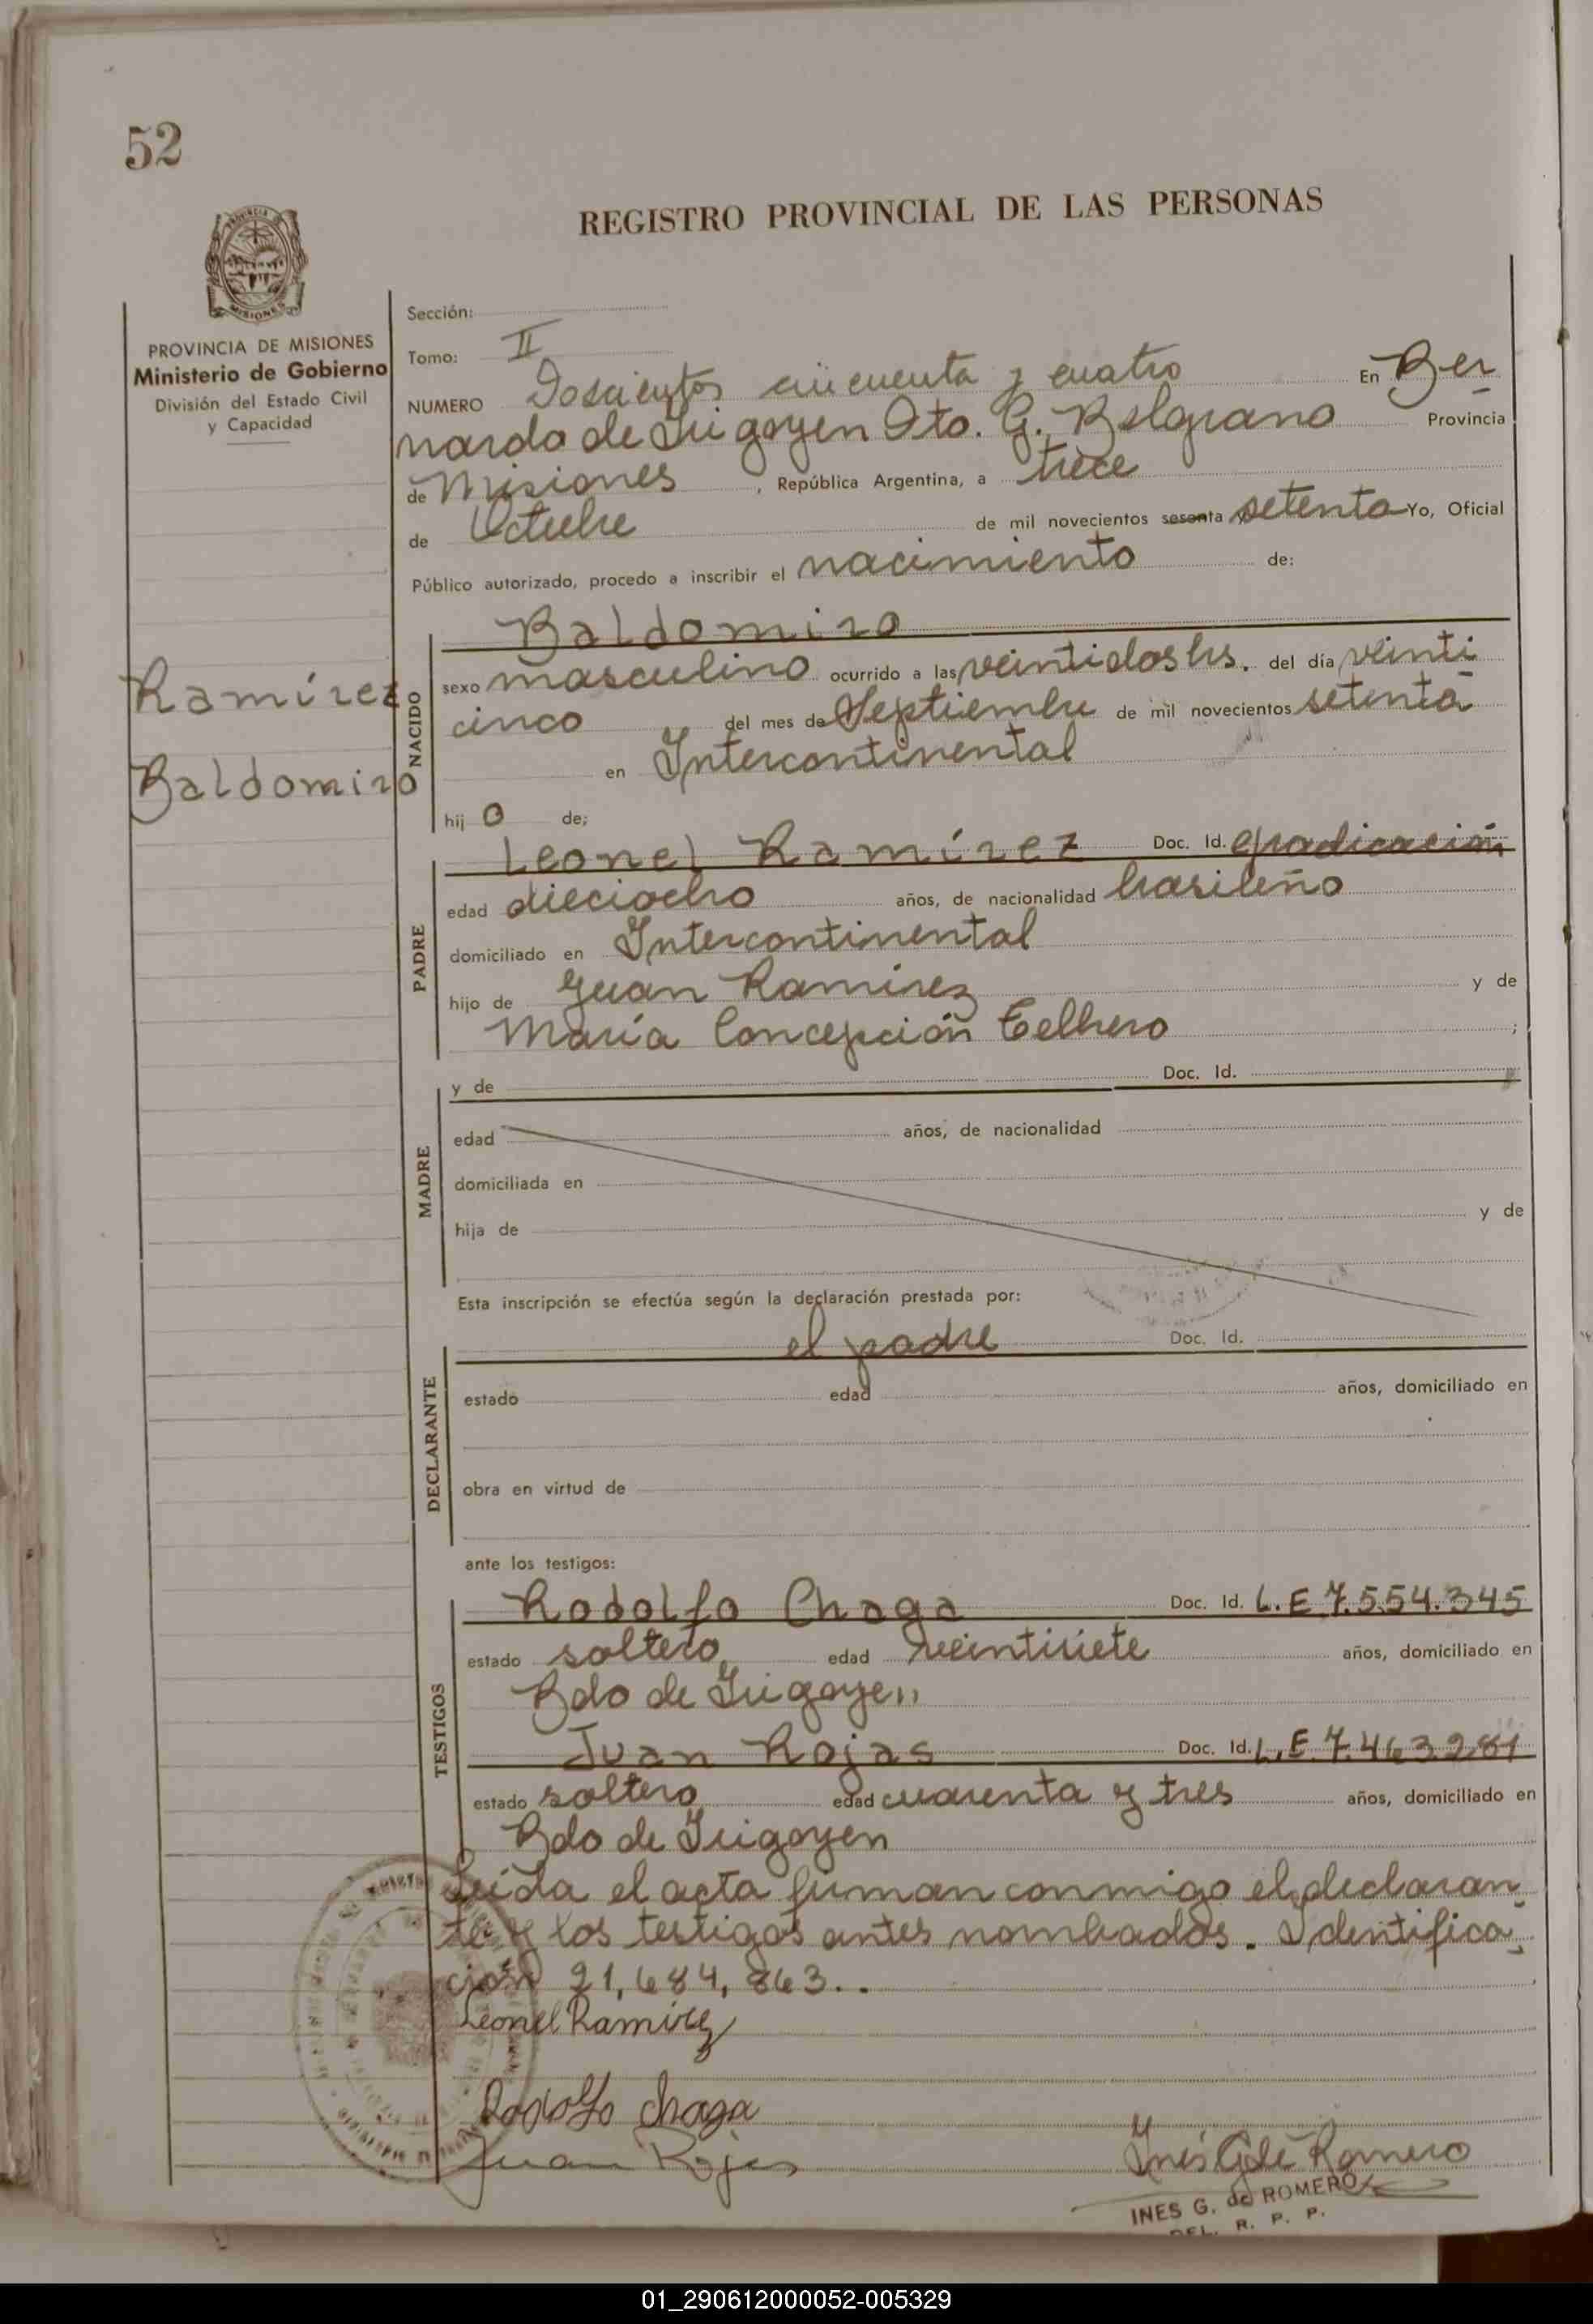 52
REGISTRO PROVINCIAL DE LAS PERSONAS
PROVINCIA DE MISIONES
Ministerio de Gobierno
División del Estado Civil
y Capacidad
Sección:
Tomo: II
NUMERO Doscientos cincuenta y cuatro En Ber
nardo de Irigoyen Dto. G. Belgrano Provincia
de Misiones, República Argentina, a trece
de Octubre de mil novecientos sesenta y setenta Yo, Oficial
Público autorizado, procedo a inscribir el nacimiento de:
Baldomiro
Ramírez
Baldomiro
NACIDO
sexo masculino ocurrido a las veintidos hs. del día veinti
cinco del mes de Septiembre de mil novecientos setenta
en Intercontinental
hijo de;
PADRE
Leonel Ramírez Doc. Id.
edad dieciocho años, de nacionalidad brasileño
domiciliado en Intercontinental
hijo de Juan Ramírez y de
María Concepción Telhero;
MADRE
y de Doc. Id.
edad años, de nacionalidad
domiciliada en
hija de y de
Esta inscripción se efectúa según la declaración prestada por:
DECLARANTE
el padre Doc. Id.
estado edad años, domiciliado en
obra en virtud de
ante los testigos:
TESTIGOS
Rodolfo Chaga Doc. Id. L.E 7.554.345
estado soltero edad veintisiete años, domiciliado en
Bdo de Irigoyen
Juan Rojas Doc. Id. L.E. 7.463.281
estado soltero edad cuarenta y tres años, domiciliado en
Bdo de Irigoyen
Leída el acta firman conmigo el declaran
te y los testigos antes nombrados. Identifica
ción 21,684,863..
Leonel Ramirez
Rodolfo Chaga
Juan Rojas
Inés G de Romero
INES G. de ROMERO
DEL. R. P. P.
01_290612000052-005329